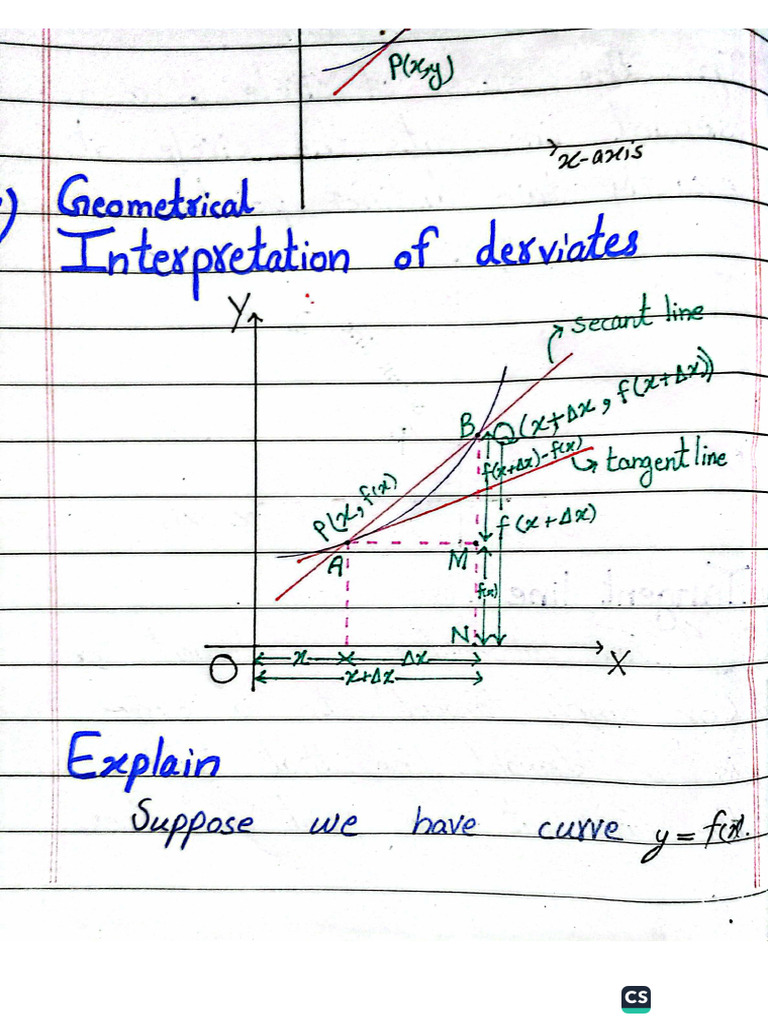 P(x,y)
x-axis
Geometrical
Interpretation of derviates
Y
secant line
B Q (x+Δx, f(x+Δx))
f(x+Δx)-f(x)
tangent line
P(x, f(x)
f(x+Δx)
A
M
f(x)
N
O
x
Δx
X
x+Δx
Explain
Suppose we have curve y = f(x).
CS